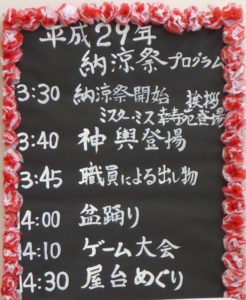 平成29年
納涼祭プログラム
13:30 納涼祭開始 挨拶
ミスター・ミス幸寿苑登場
13:40 神輿登場
13:45 職員による出し物
14:00 盆踊り
14:10 ゲーム大会
14:30 屋台めぐり